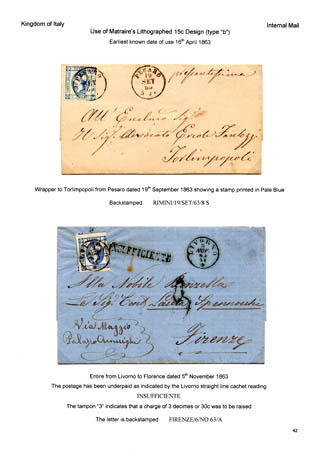 Kingdom of Italy
Internal Mail
Use of Matraire's Lithographed 15c Design (type "b")
Earliest known date of use 16th April 1863
PESARO
PESARO
19
SET
63
All'
Forlimpopoli
Wrapper to Torlimpopoli from Pesaro dated 19th September 1863 showing a stamp printed in Pale Blue
Backstamped RIMINI/19/SET/63/8 S
INSUFFICIENTE
LIVORNO
Alla Nobile Donzella
La Sig. Cont.
Via Maggio
Firenze
Entire from Livorno to Florence dated 5th November 1863
The postage has been underpaid as indicated by the Livorno straight line cachet reading
INSUFFICIENTE
The tampon "3" indicates that a charge of 3 decimes or 30c was to be raised
The letter is backstamped FIRENZE/6/NO 63/A
42